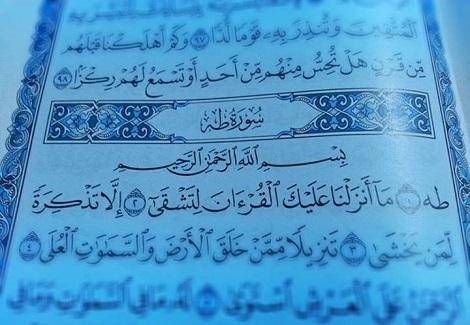 ٱلْمُتَّقِينَ وَتُنذِرَ بِهِۦ قَوْمًا لُّدًّا ٩٧ وَكَمْ أَهْلَكْنَا قَبْلَهُم
مِّن قَرْنٍ هَلْ تُحِسُّ مِنْهُم مِّنْ أَحَدٍ أَوْ تَسْمَعُ لَهُمْ رِكْزًۢا ٩٨
سُورَةُ طه
بِسْمِ ٱللَّهِ ٱلرَّحْمَٰنِ ٱلرَّحِيمِ
طه ١ مَآ أَنزَلْنَا عَلَيْكَ ٱلْقُرْءَانَ لِتَشْقَىٰٓ ٢ إِلَّا تَذْكِرَةً
لِّمَن يَخْشَىٰ ٣ تَنزِيلًا مِّمَّنْ خَلَقَ ٱلْأَرْضَ وَٱلسَّمَٰوَٰتِ ٱلْعُلَى ٤
ٱلرَّحْمَٰنُ عَلَى ٱلْعَرْشِ ٱسْتَوَىٰ ٥ لَهُۥ مَا فِى ٱلسَّمَٰوَٰتِ وَمَا فِى